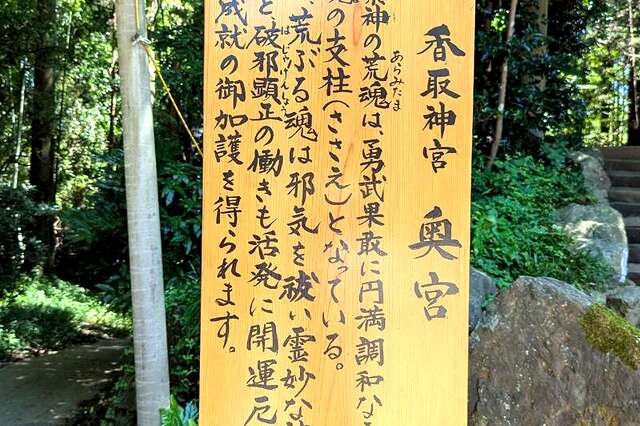 香取神宮 奥宮
神の荒魂は、勇武果敢に円満調和な
あらみたま
の支柱(ささえ)となっている。
荒ぶる魂は邪気を祓い霊妙な
と破邪顕正の働きも活発に開運厄
はじゃけんしょう
成就の御加護を得られます。